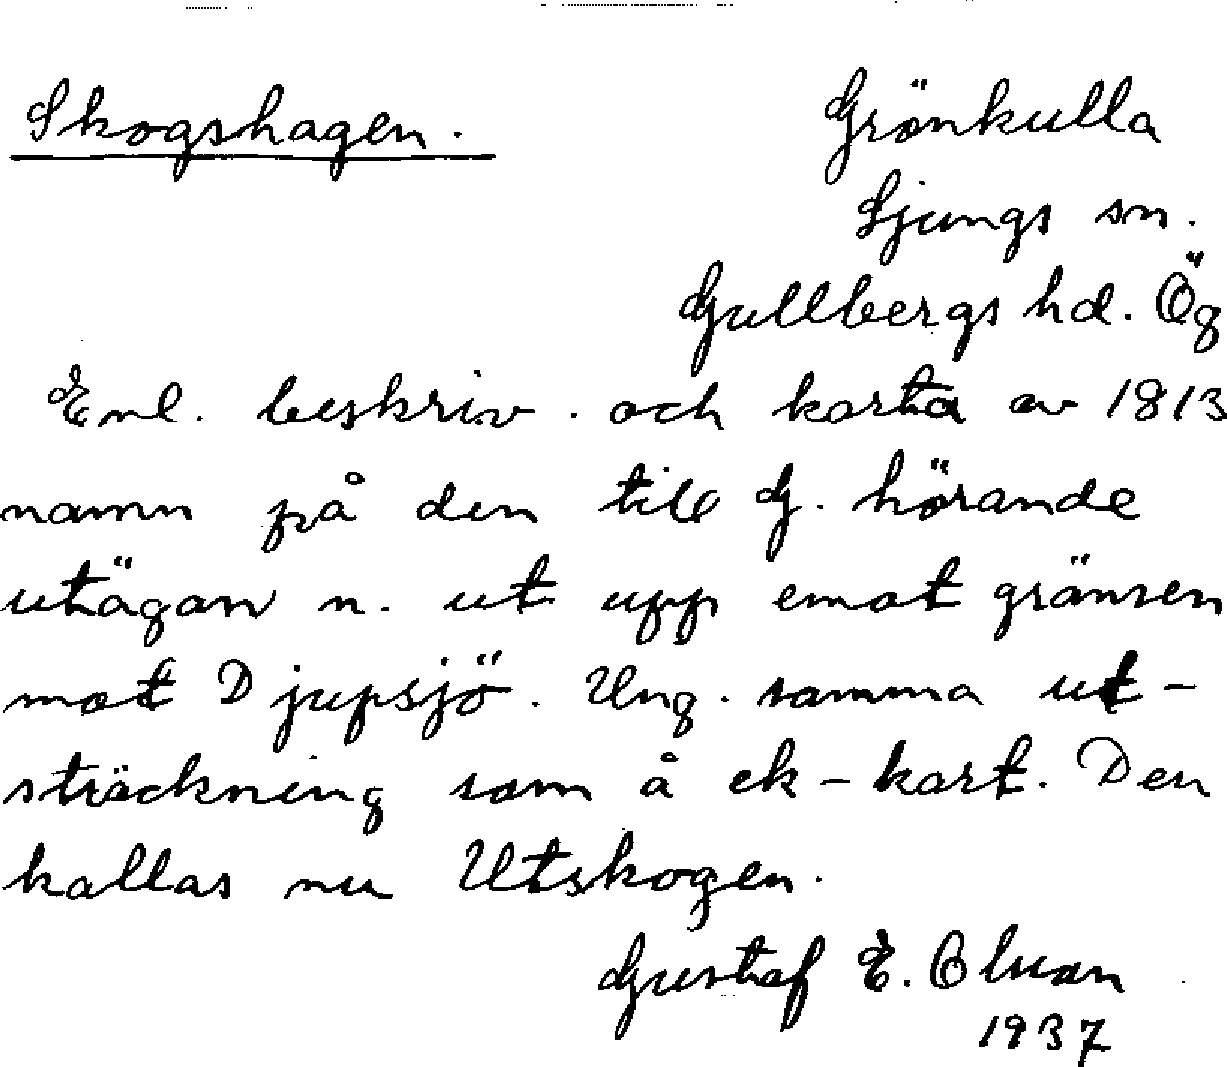 Skogshagen.
Grönkulla
Ljungs sn.
Gullbergs hd. Ög
Enl. beskriv. och karta av 1813
namn på den till G. hörande
utägan n. ut upp emot gränsen
mot Djupsjö. Ung. samma ut-
sträckning som å ek-kart. Den
kallas nu Utskogen.
Gustaf E. Olsson
1937